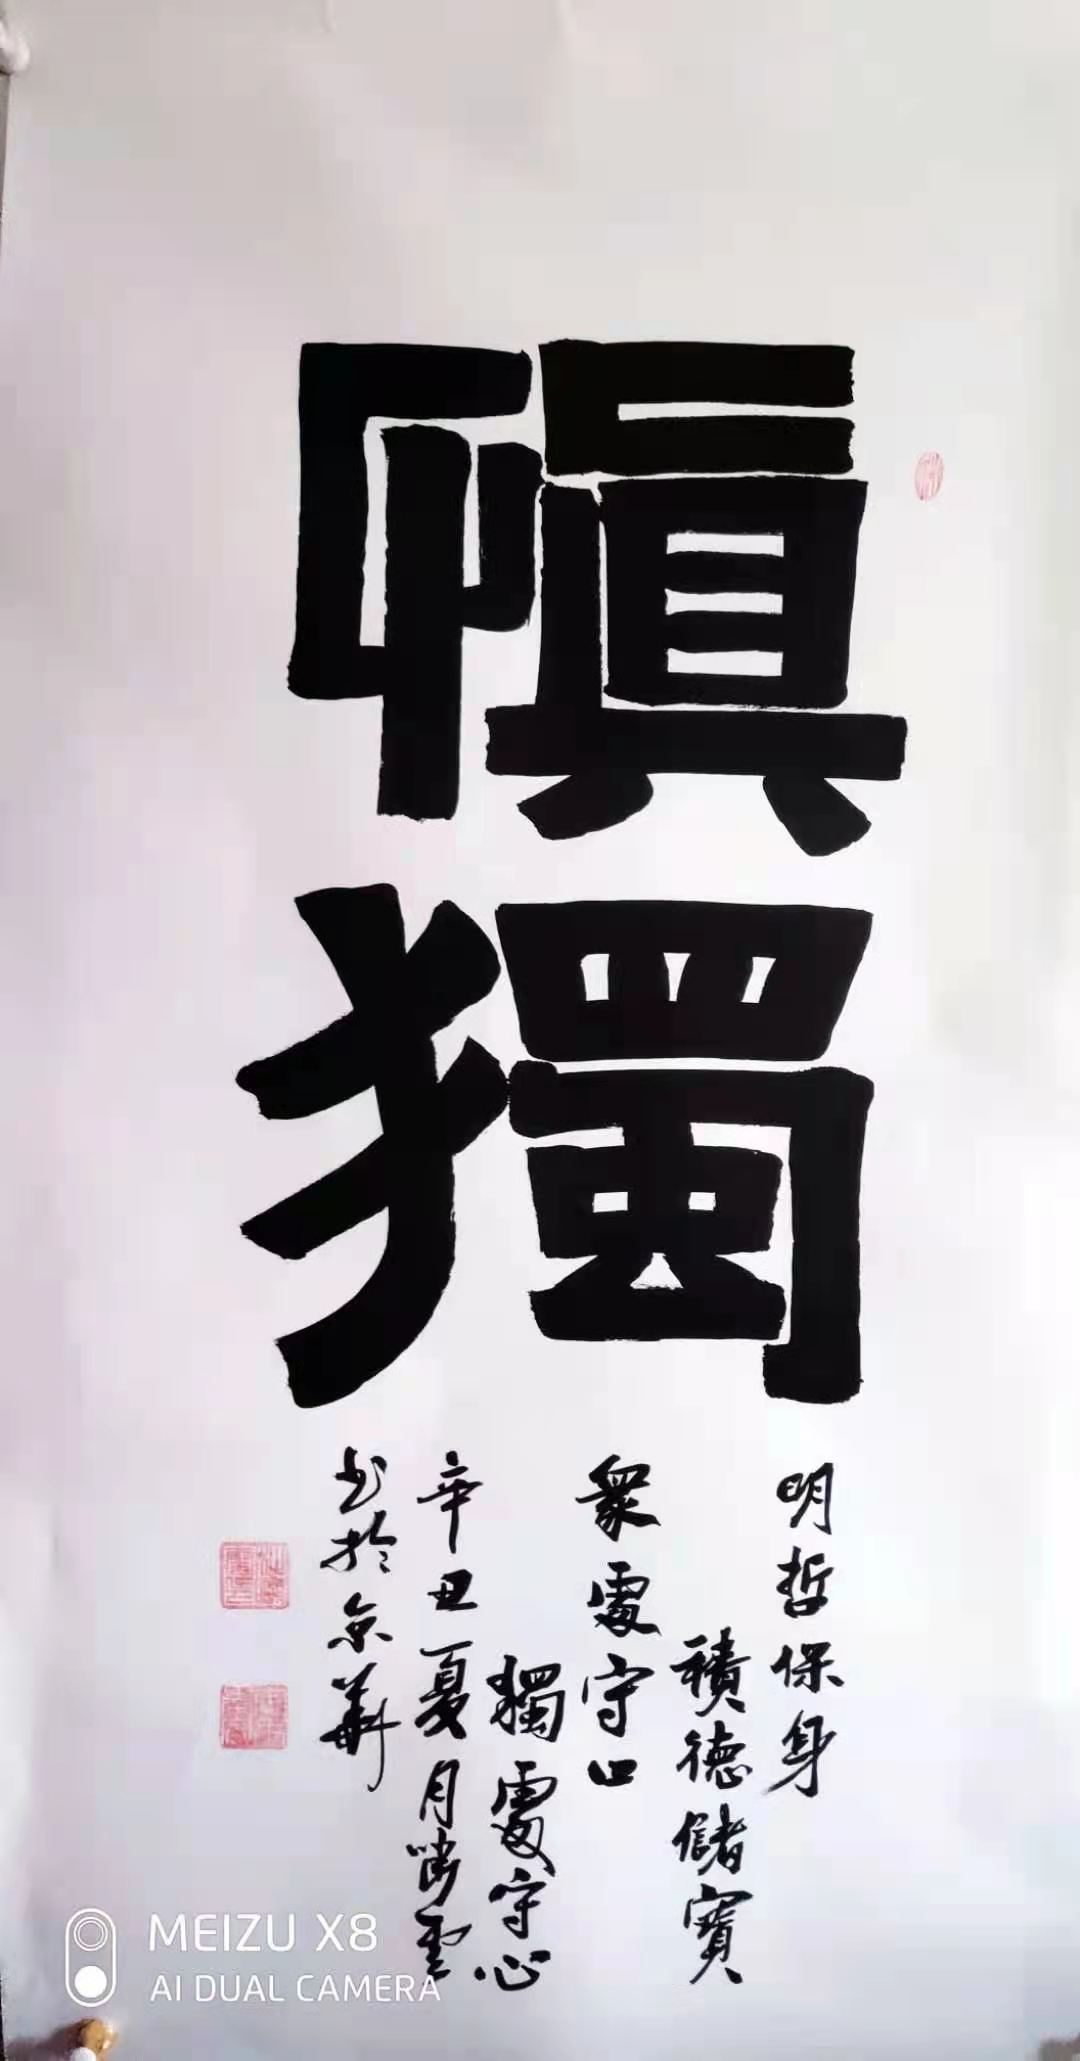 慎獨
明哲保身
積德儲寶
衆處守口
獨處守心
辛丑夏月嘯雲
书於京華
MEIZU X8
AI DUAL CAMERA